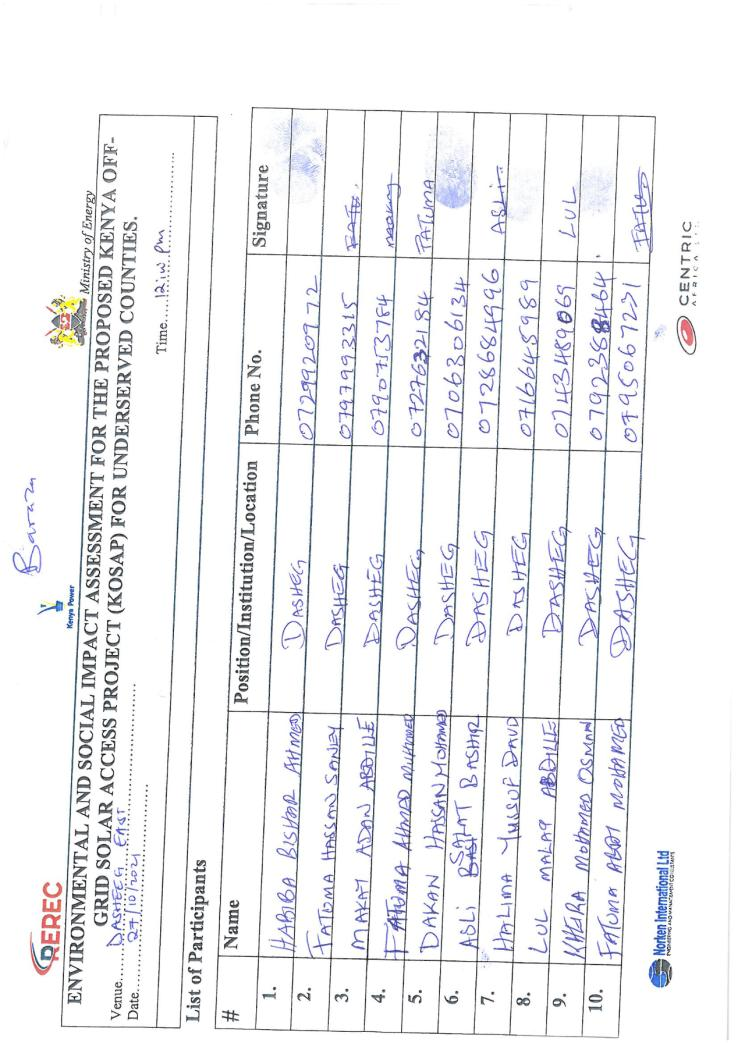 Baraza
REREC
Kenya Power
Ministry of Energy
ENVIRONMENTAL AND SOCIAL IMPACT ASSESSMENT FOR THE PROPOSED KENYA OFF-
GRID SOLAR ACCESS PROJECT (KOSAP) FOR UNDERSERVED COUNTIES.
Venue......DASHEEG EAST
Date......27/10/2021 Time.....12:10 pm
List of Participants
# Name Position/Institution/Location Phone No. Signature
1. HABIBA BISHAR AHMED DASHEG 0729920972
2. FATUMA HASSAN SANEY DASHEG 0797993315 FATU
3. MAKAI ADAN ABDILLE DASHEG 0790753784
4. FATUMA AHMED MUHUMED DASHEG 0727632184 FATUMA
5. DAKAN HASSAN MOHAMED DASHEG 0706306134
6. ASLI SAHAT BASHIR DASHEG 0728684996 ASLI
7. HALIMA YUSSUF DAUD DASHEG 0716645989
8. LUL MALAQ ABDILLE DASHEG 0743489069 LUL
9. KHEIRA MOHAMED OSMAN DASHEG 0792388464
10. FATUMA ABDI MOHAMED DASHEG 0795067271 FATUO
Norken International Ltd
ENGINEERING AND MANAGEMENT CONSULTANTS
CENTRIC
AFRICA LTD.